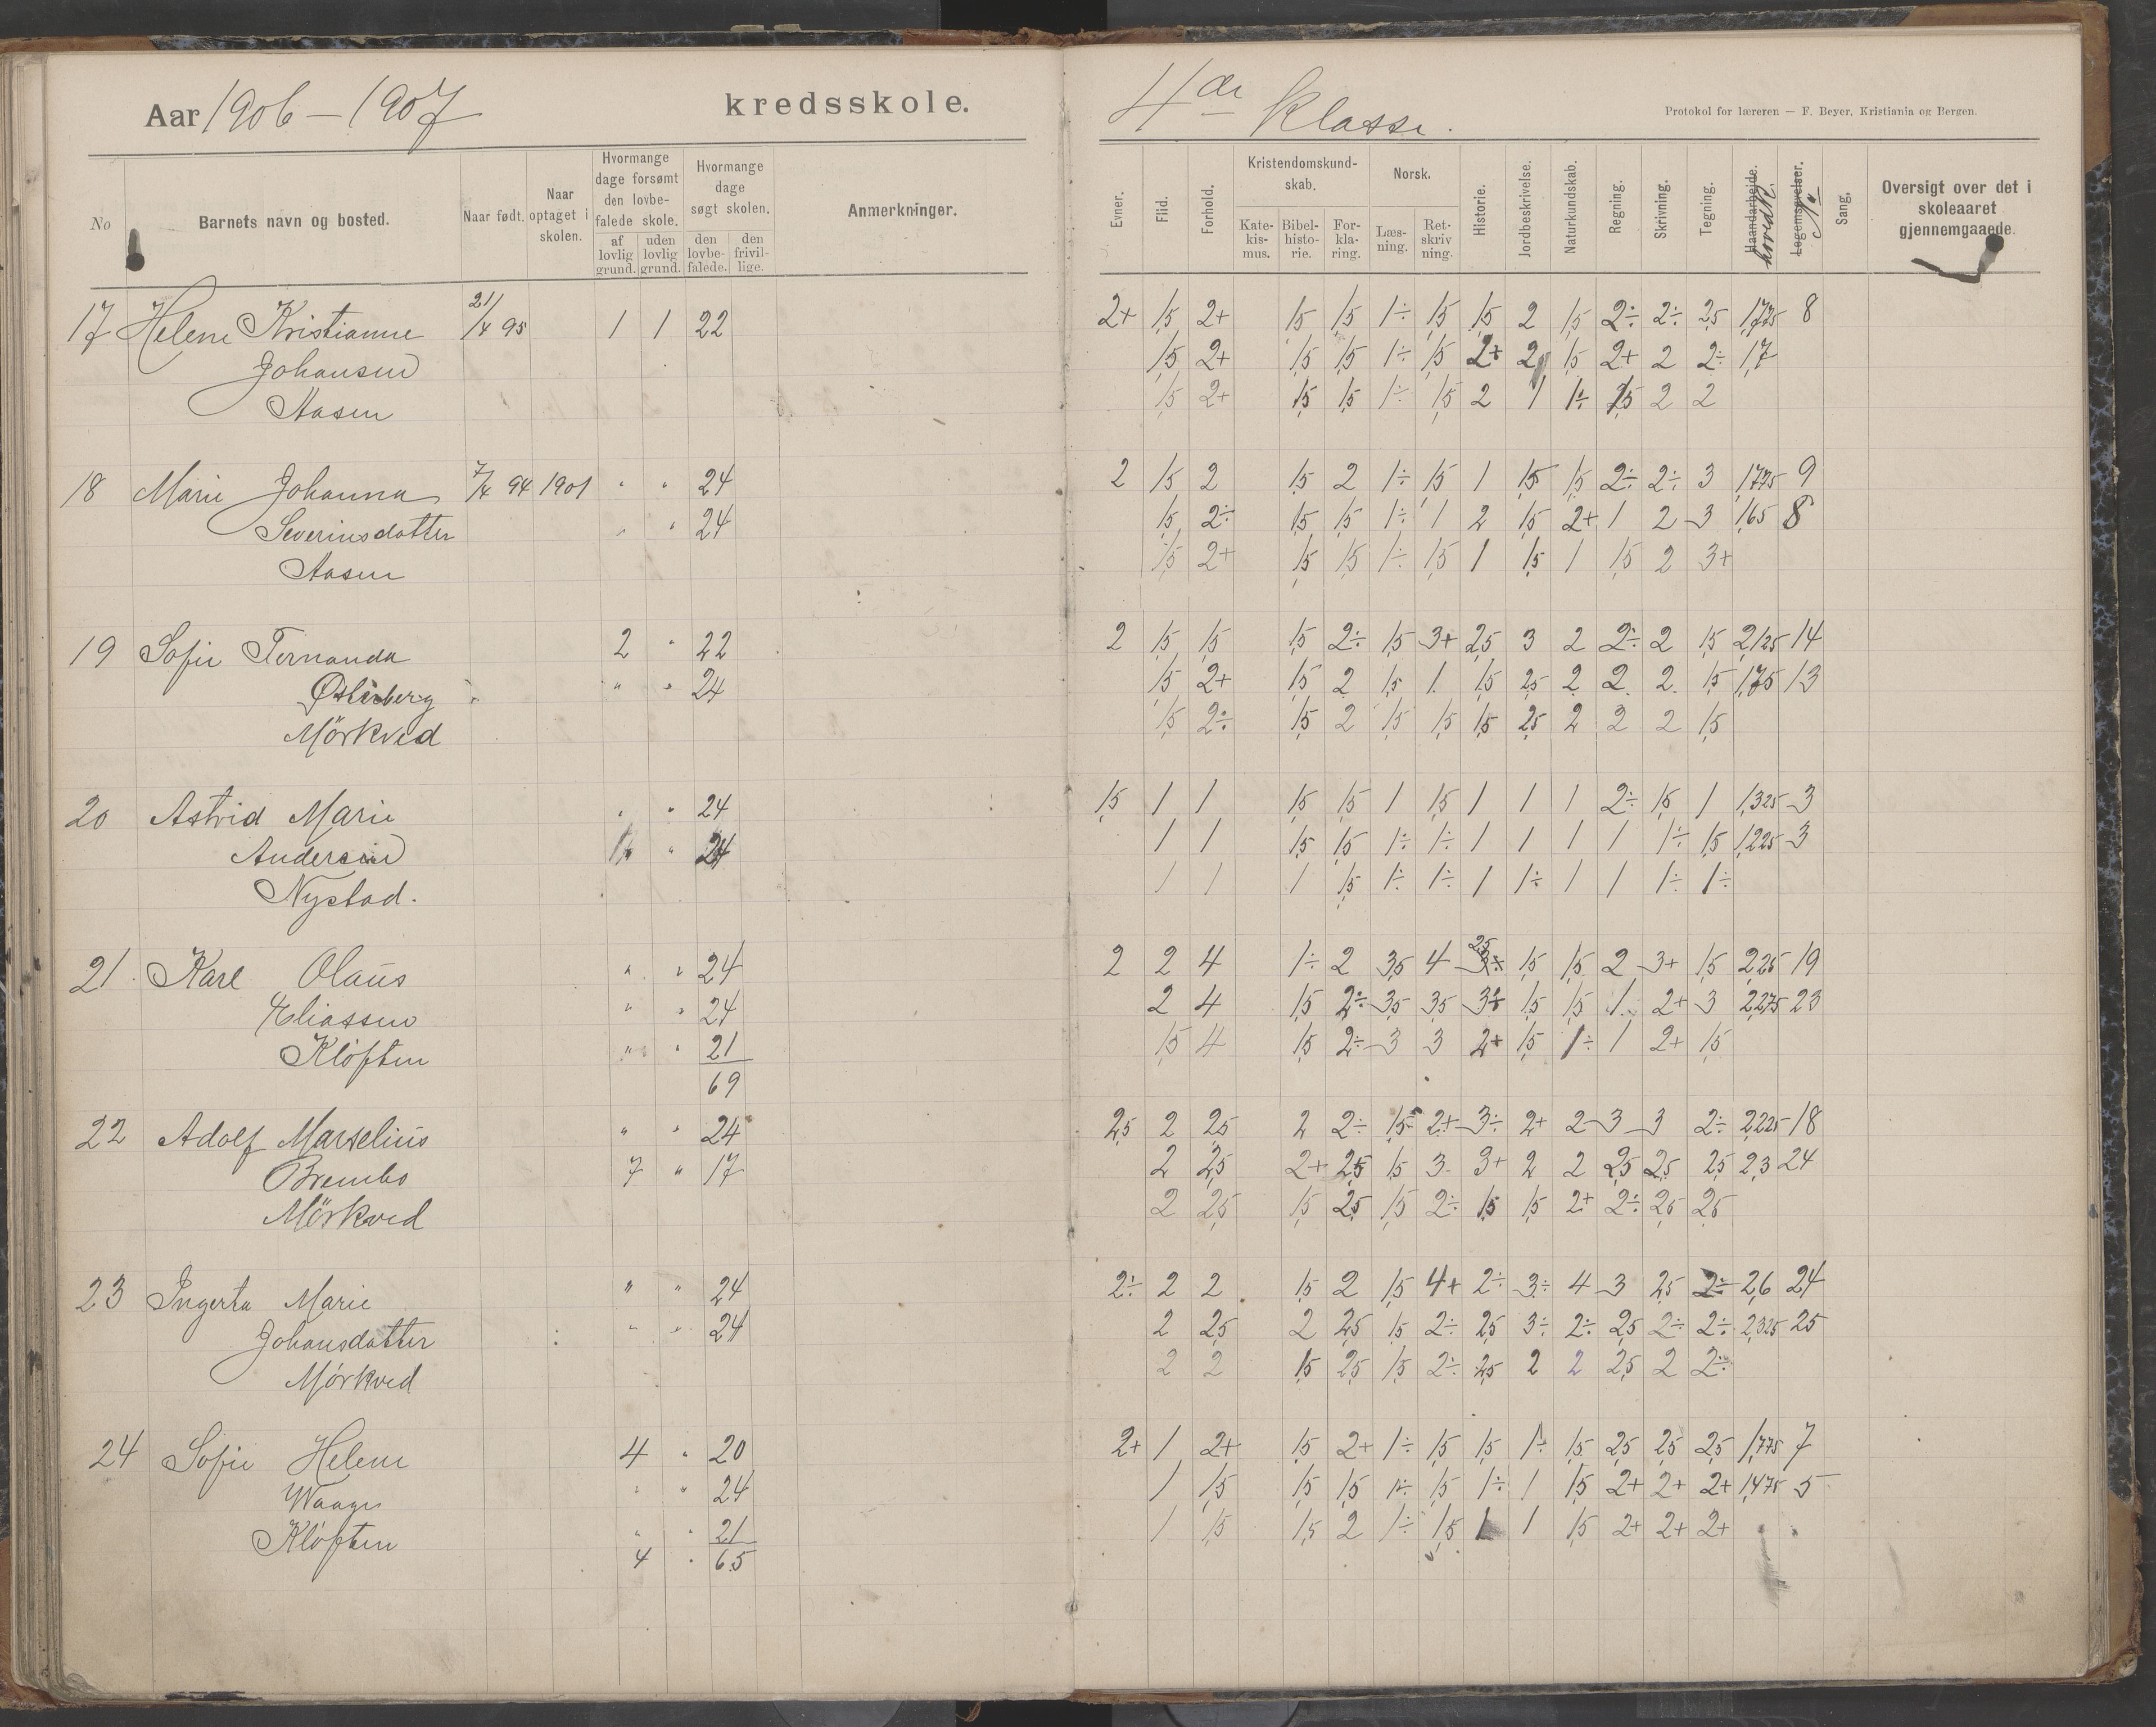 Aar 1906 – 1907 kredsskole. 4de Klasse.
Protokol for læreren — F. Beyer, Kristiania og Bergen.
No Barnets navn og bosted. Naar født. Naar optaget i skolen. Hvormange dage forsømt den lovbefalede skole. af lovlig grund. uden lovlig grund. Hvormange dage søgt skolen. den lovbefalede. den frivillige. Anmerkninger.
Evner. Flid. Forhold. Kristendomskundskab. Katekismus. Bibelhistorie. Forklaring. Norsk. Læsning. Retskrivning. Historie. Jordbeskrivelse. Naturkundskab. Regning. Skrivning. Tegning. Haandarbeide. hovedk. Legemsøvelser. No Sang. Oversigt over det i skoleaaret gjennemgaaede.
17 Helene Kristianne 21/4 95 1 1 22 2+ 1,5 2+ 1,5 1,5 1÷ 1,5 1,5 2 1,5 2÷ 2÷ 2,5 1,775 8
Johansen 1,5 2+ 1,5 1,5 1÷ 1,5 2+ 2 1,5 2+ 2 2÷ 1,7
Aasen 1,5 2+ 1,5 1,5 1÷ 1,5 2 1 1÷ 1,5 2 2
18 Marie Johanna 7/4 94 1901 " " 24 2 1,5 2 1,5 2 1÷ 1,5 1 1,5 1,5 2÷ 2÷ 3 1,775 9
Severinsdatter " " 24 1,5 2÷ 1,5 1,5 1÷ 1 2 1,5 2+ 1 2 3 1,65 8
Aasen 1,5 2+ 1,5 1,5 1÷ 1,5 1 1,5 1 1,5 2 3+
19 Sofie Fernanda 2 " 22 2 1,5 1,5 1,5 2÷ 1,5 3+ 2,5 3 2 2÷ 2 1,5 2,125 14
Østerberg " " 24 1,5 2+ 1,5 2 1,5 1 1,5 2,5 2 2 2 1,5 1,75 13
Mörkved 1,5 2÷ 1,5 2 1,5 1,5 1,5 2,5 2 2 2 1,5
20 Astrid Marie " " 24 1,5 1 1 1,5 1,5 1 1,5 1 1 1 2÷ 1,5 1 1,325 3
Andersen " 24 1 1 1,5 1,5 1÷ 1÷ 1 1 1 1 1÷ 1,5 1,225 3
Nystad. 1 1 1 1,5 1÷ 1÷ 1 1÷ 1 1 1÷ 1÷
21. Karl Olaus " " 24 2 2 4 1÷ 2 3,5 4 2,5 3÷ 1,5 1,5 2 3+ 1,5 2,25 19
Eliassen " " 24 2 4 1,5 2÷ 3,5 3,5 3÷ 1,5 1,5 1 2+ 3 2,275 23
Klöften " " 21 1,5 4 1,5 2÷ 3 3 2+ 1,5 1÷ 1 2+ 1,5
69
22 Adolf Marselius " " 24 2,5 2 2,5 2 2÷ 1,5 2+ 3÷ 2+ 2 3 3 2÷ 2,225 18
Brembo 7 " 17 2 2,5 2+ 2,5 1,5 3 3+ 2 2 2,5 2,5 2,5 2,3 24
Mörkved 2 2,5 1,5 2,5 1,5 2÷ 1,5 1,5 2+ 2÷ 2,5 2,5
23 Ingerta Marie " " 24 2÷ 2 2 1,5 2 1,5 4+ 2÷ 3÷ 4 3 2,5 2÷ 2,6 24
Johansdatter " " 24 2 2,5 2 2,5 1,5 2÷ 2,5 3÷ 2÷ 2,5 2÷ 2÷ 2,325 25
Mörkved 2 2 1,5 2,5 1,5 2÷ 2,5 2 2 2,5 2 2÷
24 Sofie Helene 4 " 20 2+ 1 2+ 1,5 2+ 1÷ 1,5 1,5 1÷ 1,5 2,5 2,5 2,5 1,775 7
Waage " " 24 1 1,5 1,5 1,5 1÷ 1,5 1÷ 1 1,5 2+ 2+ 2+ 1,475 5
Klöften " " 21 1 1,5 1,5 2 1÷ 1,5 1 1 1,5 2+ 2+ 2+
4 " 65